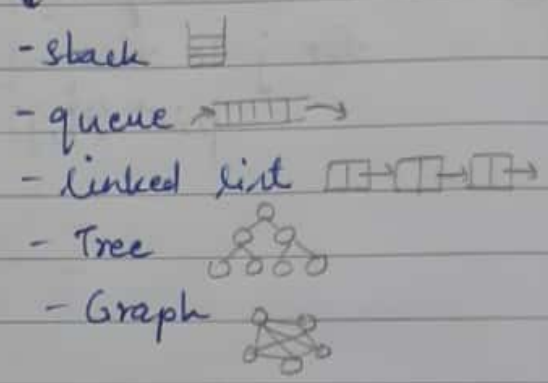 - stack
- queue
- linked list
- Tree
- Graph